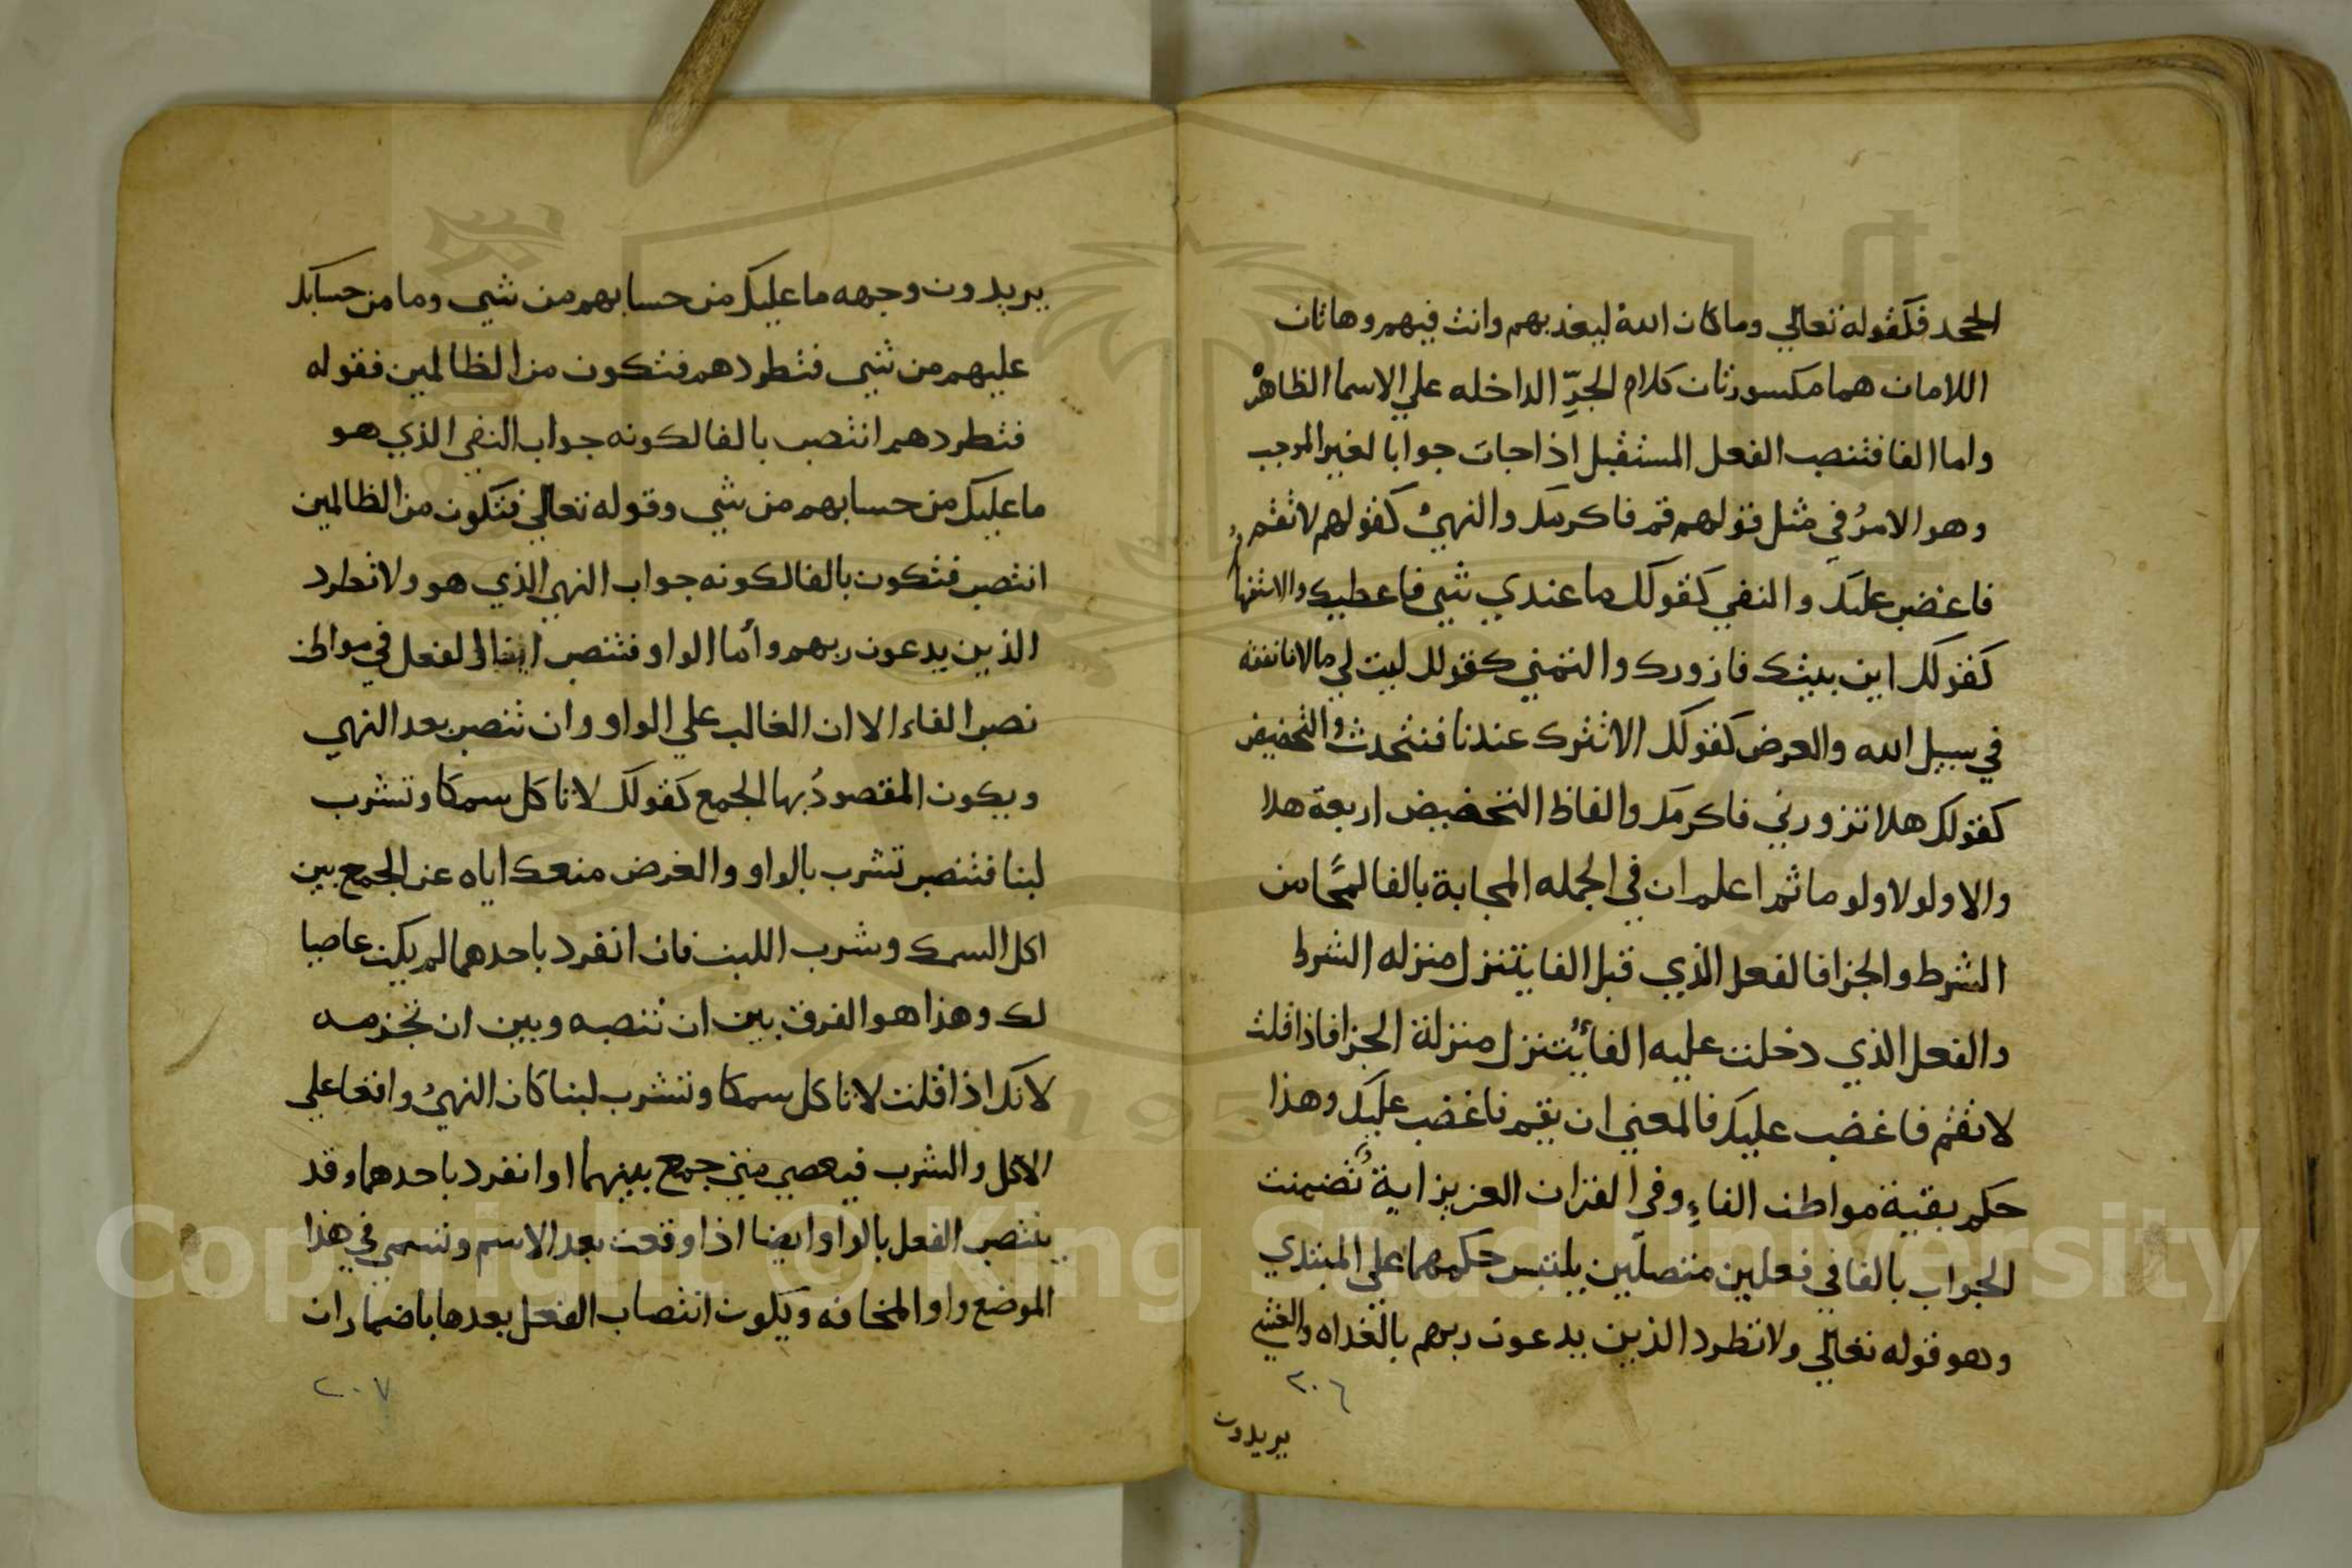 الجحد فكقوله تعالي وما كان الله ليعذبهم وانت فيهم وهاتان
اللامان هما مكسورتان كلام الجرّ الداخله علي الاسما الظاهرْ
واما الفا فتنصب الفعل المستقبل اذا جات جوابا لغير الموجب
وهو الامرُ في مثل قولهم قم فاكرمك والنهيُ كقولهم لا تقم
فاغضب عليك والنفي كقولك ما عندي شي فاعطيك والاستفها
كقولك اين بيتك فازورك والتمني كقولك ليت لي مالا فانفقه
في سبيل الله والعرض كقولك الا تنزل عندنا فنتحدث والتحضيض
كقولك هلا تزورني فاكرمك والفاظ التحضيض اربعة هلا
والا ولولا ولوما ثم اعلم ان في الجمله المجابة بالفا لمحًا من
الشرط والجزا فالفعل الذي قبل الفا يتنزل منزله الشرط
والفعل الذي دخلت عليه الفا يتنزل منزلة الجزا فاذا قلت
لا تقم فاغضب عليك فالمعني ان يقم فاغضب عليك وهذا
حكم بقية مواطن الفاءِ وفي القران العزيز اية تضمنت
الجواب بالفا في فعلين متصلين يلتبس حكمهما علي المبتدي
وهو قوله تعالي ولا تطرد الذين يدعون ربهم بالغداه والعشي
٢٠٦
يريدون
يريدون وجهه ما عليك من حسابهم من شي وما من حسابك
عليهم من شي فتطردهم فتكون من الظالمين فقوله
فتطردهم انتصب بالفا لكونه جواب النفي الذي هو
ما عليك من حسابهم من شي وقوله تعالي فتكون من الظالمين
انتصب فتكون بالفا لكونه جواب النهي الذي هو ولا تطرد
الذين يدعون ربهم وأما الواو فتنصب ايضا الفعل في مواطن
نصب الفاء الا ان الغالب علي الواو وان تنصب بعد النهي
ويكون المقصودُ بها الجمع كقولك لا تاكل سمكا وتشرب
لبنا فتنصب تشرب بالواو والغرض منعك اياه عن الجمع بين
اكل السمك وشرب اللبن فان انفرد باحدهما لم يكن عاصيا
لك وهذا هو الفرق بين ان تنصبه وبين ان تجزمه
لانك اذا قلت لا تاكل سمكا وتشرب لبنا كان النهيُ واقعا علي
الاكل والشرب فيعصي متي جمع بينهما او انفرد باحدهما وقد
ينتصب الفعل بالواو ايضا اذا وقعت بعد الاسم وتسمي في هذا
الموضع واو المخافه ويكون انتصاب الفعل بعدها باضمار ان
٢٠٧
Copyright © King Saud University
1957